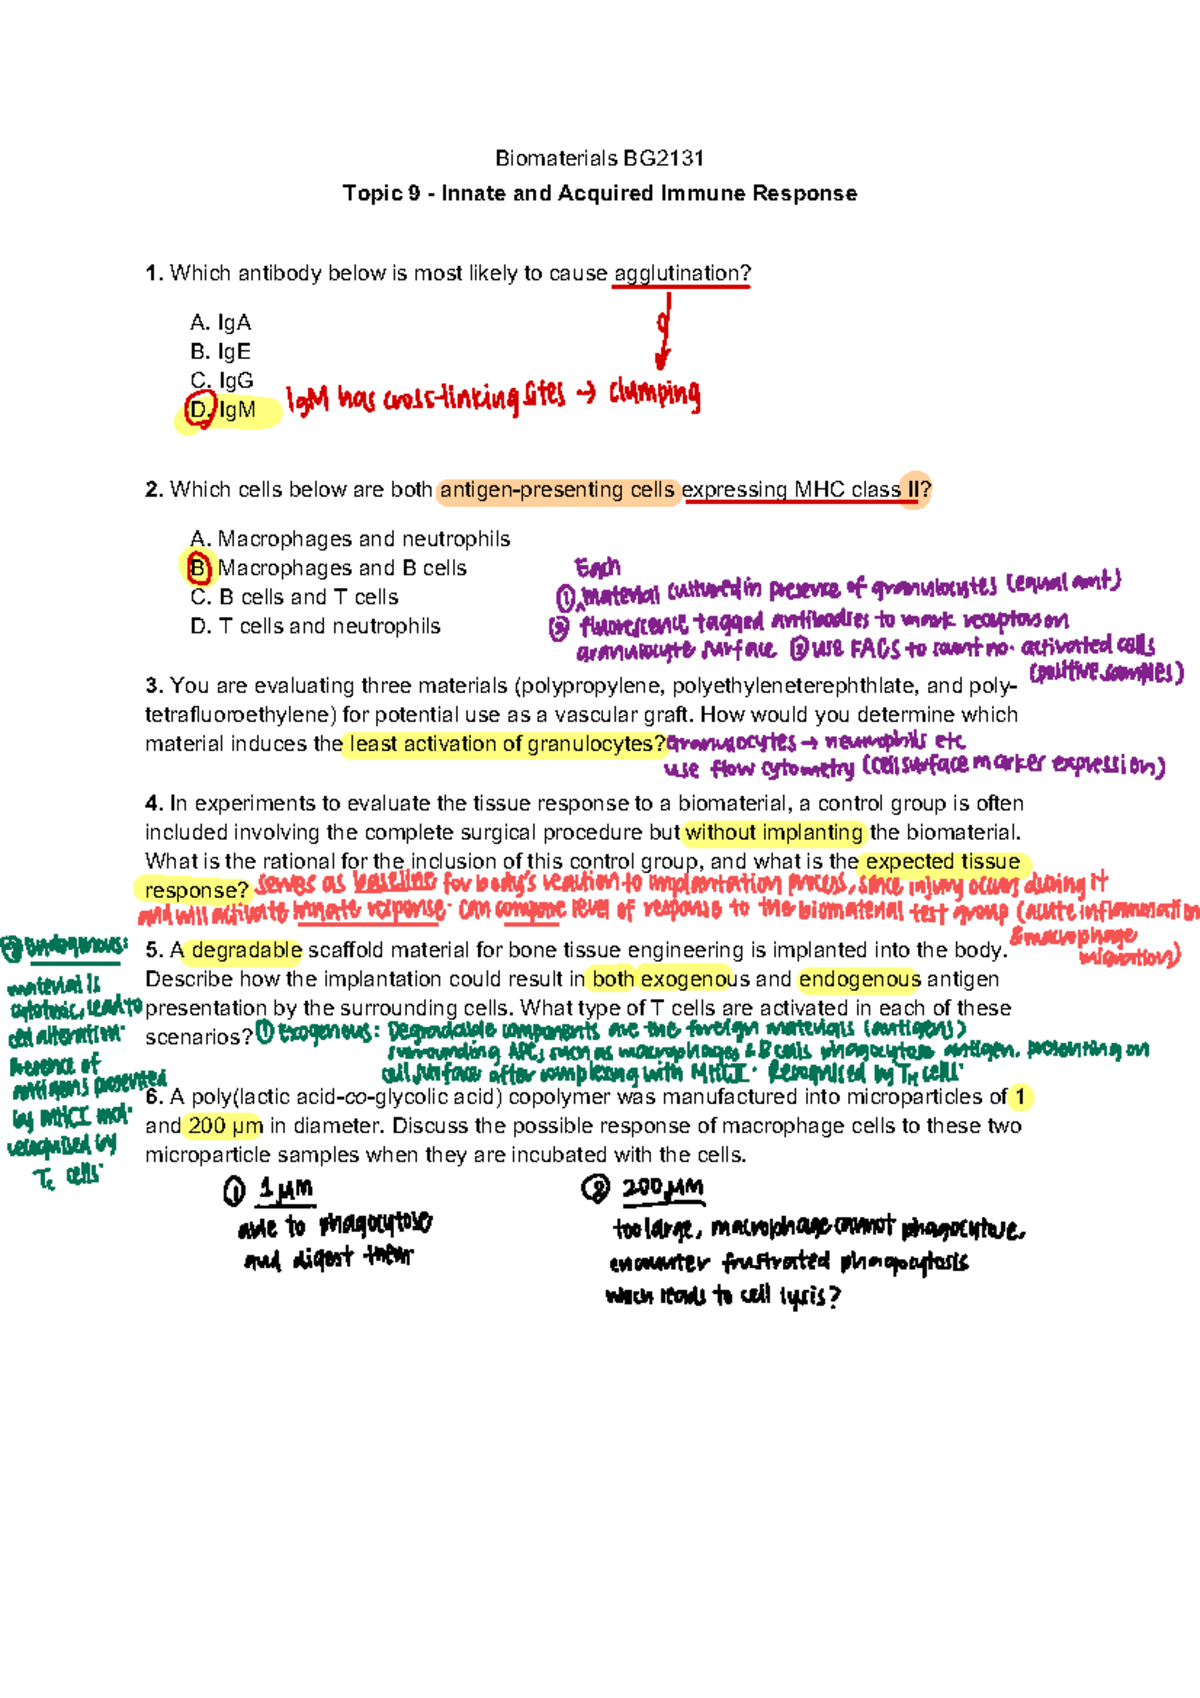 Biomaterials BG2131
Topic 9 - Innate and Acquired Immune Response
1. Which antibody below is most likely to cause agglutination?
A. IgA
B. IgE
C. IgG
D. IgM
IgM has cross-linking sites → clumping
2. Which cells below are both antigen-presenting cells expressing MHC class II?
A. Macrophages and neutrophils
B. Macrophages and B cells
C. B cells and T cells
D. T cells and neutrophils
Each
① material cultured in presence of granulocytes (equal amt)
② fluorescence tagged antibodies to mark receptors on
granulocyte surface ③ use FACS to count no. activated cells
(positive samples)
3. You are evaluating three materials (polypropylene, polyethyleneterephthlate, and poly-
tetrafluoroethylene) for potential use as a vascular graft. How would you determine which
material induces the least activation of granulocytes? Granulocytes → neutrophils etc
use flow cytometry (cell surface marker expression)
4. In experiments to evaluate the tissue response to a biomaterial, a control group is often
included involving the complete surgical procedure but without implanting the biomaterial.
What is the rational for the inclusion of this control group, and what is the expected tissue
response? serves as baseline for body's reaction to implantation process, since injury occurs during it
and will activate innate response. can compare level of response to the biomaterial test group (acute inflammation
& macrophage
migration)
5. A degradable scaffold material for bone tissue engineering is implanted into the body.
Describe how the implantation could result in both exogenous and endogenous antigen
presentation by the surrounding cells. What type of T cells are activated in each of these
scenarios? ① Exogenous: Degradable components are the foreign materials (antigens)
surrounding APC, such as macrophages & B cells phagocytose antigen, presenting on
cell surface after complexing with MHCII. Recognised by TH cells.
② Endogenous:
material is
cytotoxic, lead to
cell alteration.
Presence of
antigens presented
by MHCI mol.
recognised by
Tc cells.
6. A poly(lactic acid-co-glycolic acid) copolymer was manufactured into microparticles of 1
and 200 µm in diameter. Discuss the possible response of macrophage cells to these two
microparticle samples when they are incubated with the cells.
① 1 µm
able to phagocytose
and digest them
② 200 µm
too large, macrophage cannot phagocytose,
encounter frustrated phagocytosis
which leads to cell lysis?